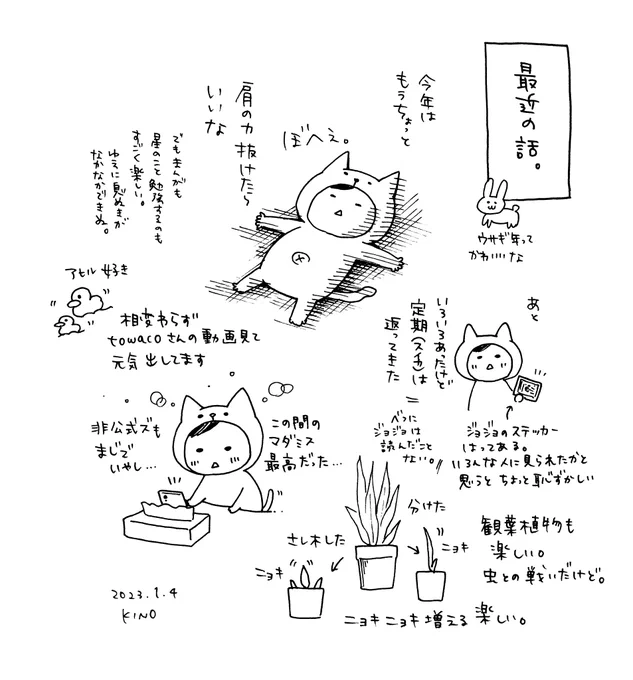 最近の話。
ウサギ年って
かわいいな
今年は
もうちょっと
肩の力抜けたら
いいな
ぼへぇ。
でもまんがも
星のこと勉強するのも
すごく楽しい。
ゆえに息ぬきが
なかなかできぬ。
アヒル好き
相変わらず
towacoさんの動画見て
元気出してます
あと
いろいろあったけど
定期(スイカ)は
返ってきた
ジョジョのステッカー
はってある。
いろんな人に見られたかと
思うとちょっと恥ずかしい
べつに
ジョジョは
読んだこと
ない。
非公式ズも
まじで
いやし…
この間の
マダミス
最高だった…
観葉植物も
楽しい。
虫との戦いだけど。
分けた
ニョキ
さし木した
ニョキ
ニョキニョキ増える楽しい。
2023.1.4
KINO